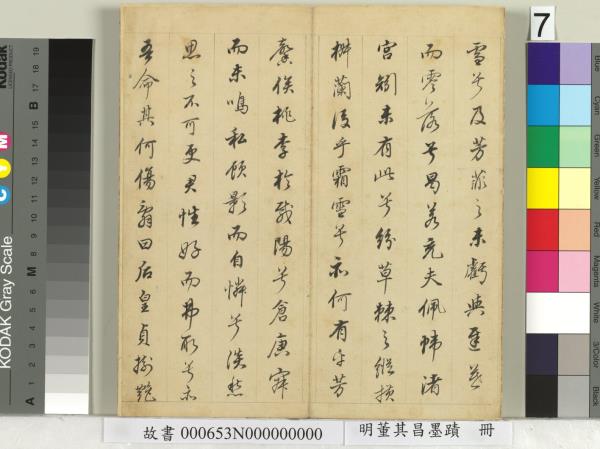 雪兮及芳菲之未虧與遲莫
而零落兮曷若充夫佩幃渚
宮矧未有此兮紛草棘之縱橫
椒蘭後乎霜雪兮亦何有乎芳
馨俟桃李於載陽兮倉庚寂
而未鳴私顧影而自憐兮淡愁
思之不可更君性好而弗取兮亦
吾命其何傷辭曰后皇貞樹艷
故書 000653N000000000
明董其昌墨蹟 冊
7
KODAK Gray Scale
Kodak
C Y M
A 1 2 3 4 5 6 M 8 9 10 11 12 13 14 15 B 17 18 19
Blue
Cyan
Green
Yellow
Red
Magenta
White
3/Color
Black